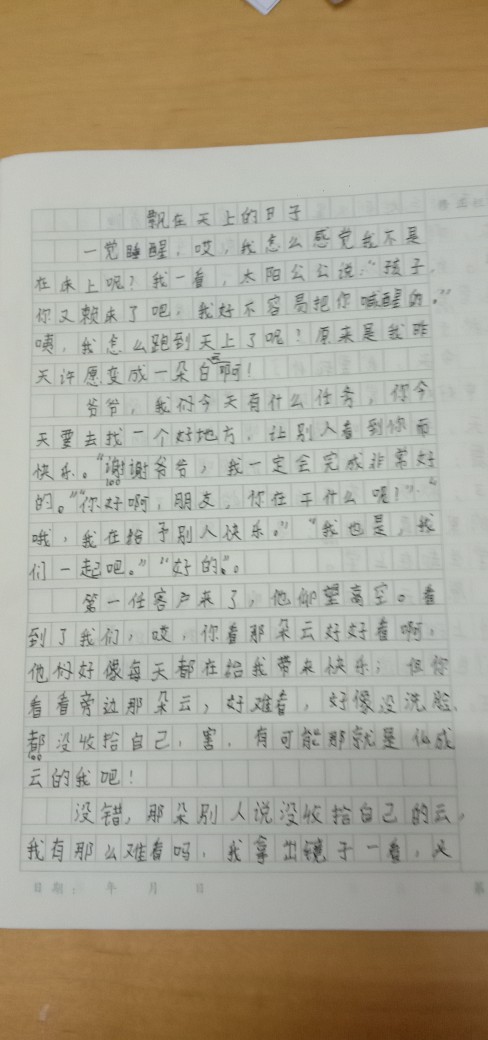 飘在天上的日子
一觉睡醒,哎,我怎么感觉我不是
在床上呢?我一看,太阳公公说:“孩子,
你又赖床了吧,我好不容易把你喊醒的。”
咦,我怎么跑到天上了呢?原来是我昨
天许愿变成一朵白云啊!
爷爷,我们今天有什么任务,你今
天要去找一个好地方,让别人看到你而
快乐。“谢谢爷爷,我一定会完成非常好
的。”“你好啊,朋友,你在干什么呢!”“
哦,我在给予别人快乐。”“我也是,我
们一起吧。”“好的”。
第一任客户来了,他仰望高空。看
到了我们,哎,你看那朵云好好看啊,
他们好像每天都在给我带来快乐;但你
看看旁边那朵云,好难看,好像没洗脸、
都没收拾自己,害,有可能那就是化成
云的我吧!
没错,那朵别人说没收拾自己的云,
我有那么难看吗,我拿出镜子一看,
日期: 年 月 日
第